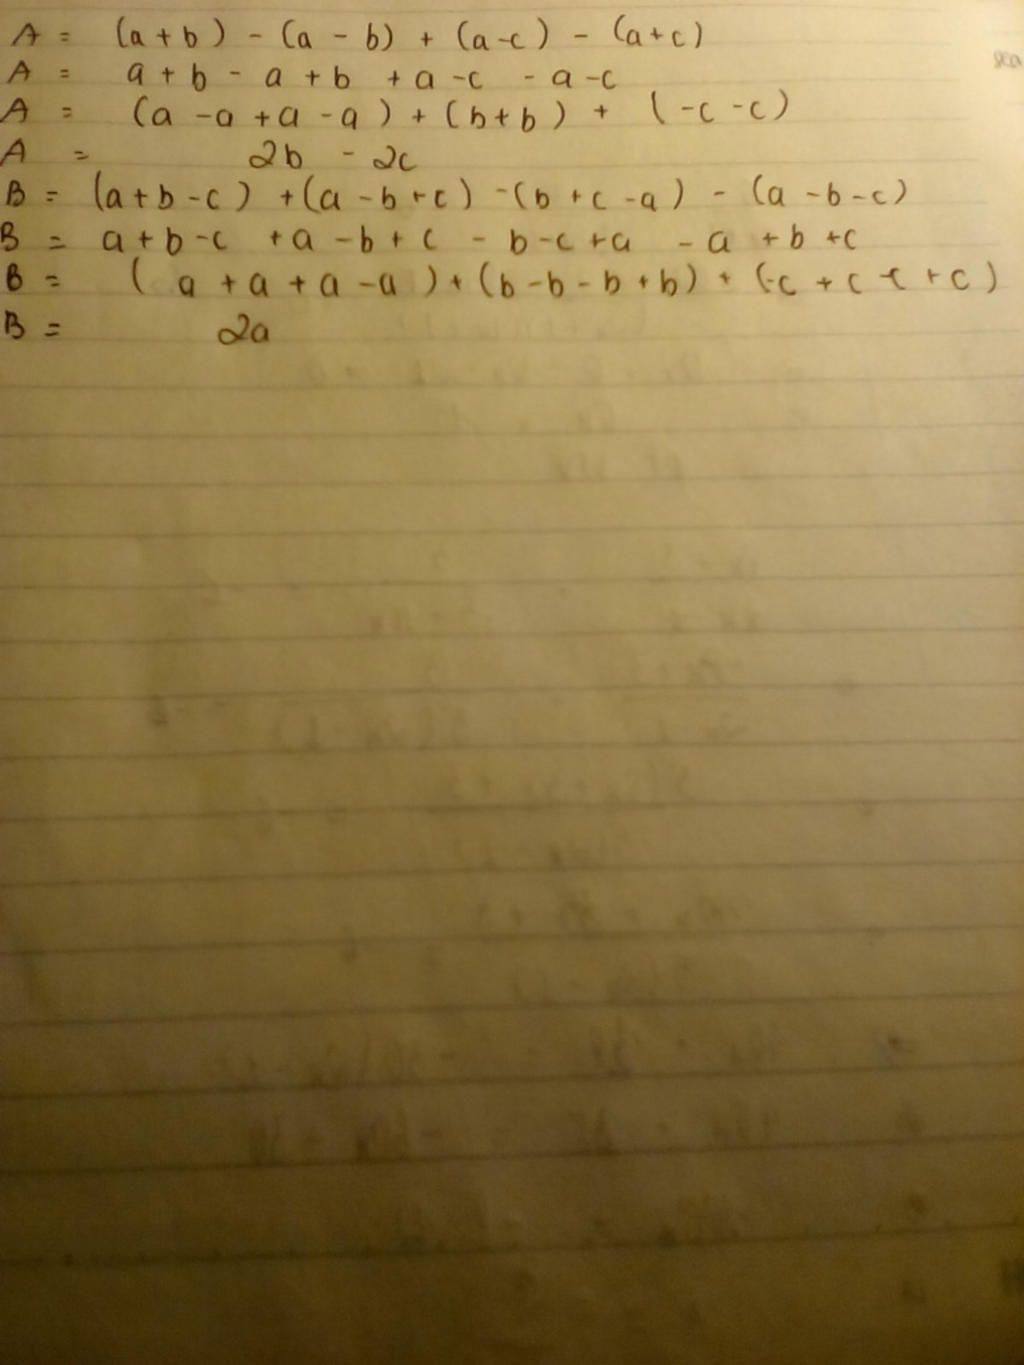 A = (a + b) - (a - b) + (a - c) - (a + c)
A = a + b - a + b + a - c - a - c
A = (a - a + a - a) + (b + b) + (-c - c)
A = 2b - 2c
B = (a + b - c) + (a - b + c) - (b + c - a) - (a - b - c)
B = a + b - c + a - b + c - b - c + a - a + b + c
B = (a + a + a - a) + (b - b - b + b) + (-c + c - c + c)
B = 2a